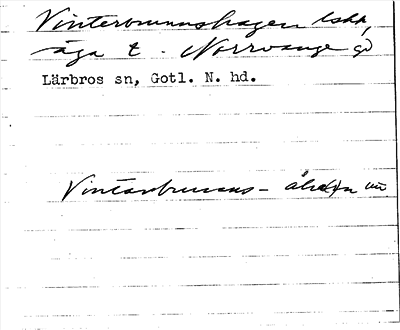 Vinterbrunnshagen lska,
äga t. Norrvange gd
Lärbros sn, Gotl. N. hd.
Vinterbrunns-